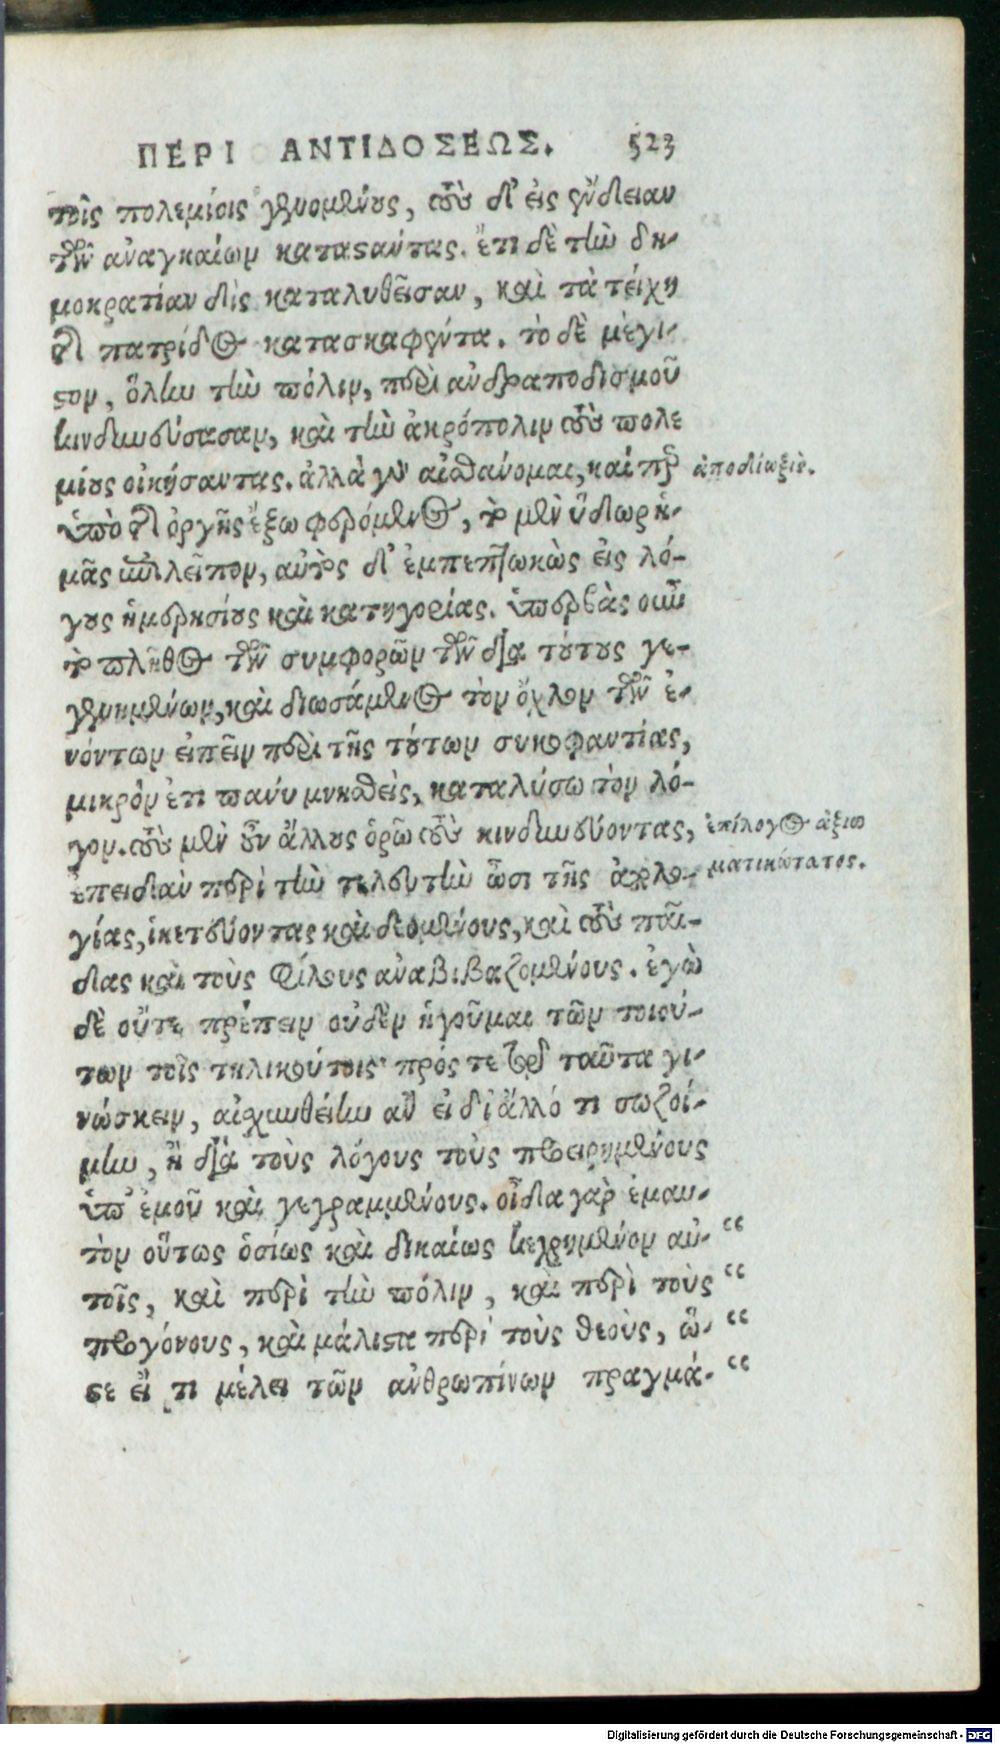 ΠΕΡΙ ΑΝΤΙΔΟΣΕΩΣ. 523
τοῖς πολεμίοις γενομένους, τοὺς δ' εἰς ἔνδειαν
τῶν ἀναγκαίων καταστάντας. ἔτι δὲ τὴν δη-
μοκρατίαν δὶς καταλυθεῖσαν, καὶ τὰ τείχη
τῆς πατρίδος κατασκαφέντα. τὸ δὲ μέγι-
στον, ὅλην τὴν πόλιν, περὶ ἀνδραποδισμοῦ
κινδυνεύσασαν, καὶ τὴν ἀκρόπολιν τοὺς πολε
μίους οἰκήσαντας. ἀλλὰ γὰρ αἰσθάνομαι, καίπερ
ὑπὸ τῆς ὀργῆς ἔξω φερόμενος, τὸ μὲν ὕδωρ ἡ-
μᾶς ἐπιλεῖπον, αὐτὸς δ' ἐμπεπτωκὼς εἰς λό-
γους ἡμερησίους καὶ κατηγορίας. ὑπερβὰς οὖν
τὸ πλῆθος τῶν συμφορῶν τῶν διὰ τούτους γε-
γενημένων, καὶ διωσάμενος τὸν ὄχλον τῶν ἐ-
νόντων εἰπεῖν περὶ τῆς τούτων συκοφαντίας,
μικρὸν ἔτι πάνυ μνησθεὶς, καταλύσω τὸν λό-
γον. τοὺς μὲν οὖν ἄλλους ὁρῶ τοὺς κινδυνεύοντας,
ἐπειδὰν περὶ τὴν τελευτὴν ὦσι τῆς ἀπολο-
γίας, ἱκετεύοντας καὶ δεομένους, καὶ τοὺς παῖ-
δας καὶ τοὺς φίλους ἀναβιβαζομένους. ἐγὼ
δὲ οὔτε πρέπειν οὐδὲν ἡγοῦμαι τῶν τοιού-
των τοῖς τηλικούτοις· πρός τε τῷ ταῦτα γι-
νώσκειν, αἰσχυνθείην ἂν εἰ δι' ἄλλό τι σωζοί-
μην, ἢ διὰ τοὺς λόγους τοὺς προειρημένους
ὑπ' ἐμοῦ καὶ γεγραμμένους. οἶδα γὰρ ἐμαυ-
τὸν οὕτως ὁσίως καὶ δικαίως κεχρημένον αὐ- “
τοῖς, καὶ περὶ τὴν πόλιν, καὶ περὶ τοὺς “
προγόνους, καὶ μάλιστα περὶ τοὺς θεοὺς, ὥ- “
στε εἴ τι μέλει τῶν ἀνθρωπίνων πραγμά- “
ἀποδίωξις.
ἐπίλογος ἀξιω
ματικώτατος.
Digitalisierung gefördert durch die Deutsche Forschungsgemeinschaft - DFG